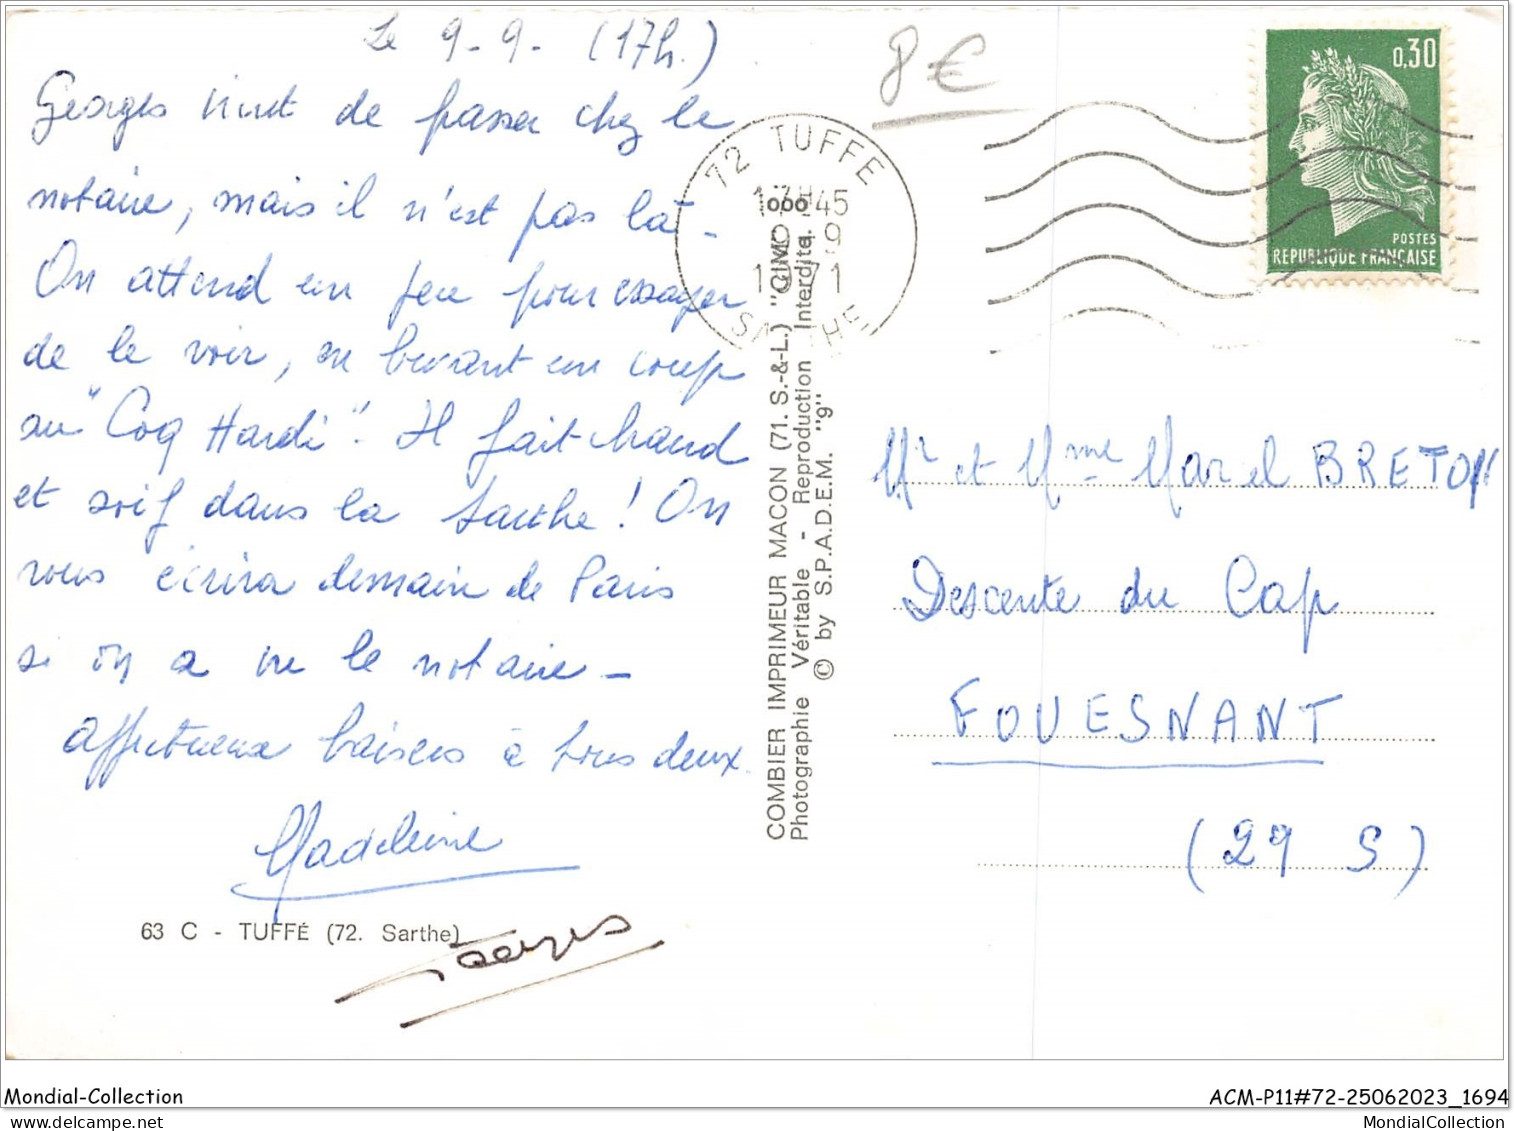 Le 9-9- (17h.)
Georges vient de passer chez le
notaire, mais il n'est pas là -
On attend un peu pour essayer
de le voir, en buvant un coup
au "Coq Hardi". Il fait chaud
et soif dans la Sarthe ! On
vous écrira demain de Paris
si on a vu le notaire -
Affectueux baisers à tous deux.
Madeleine
Georges
63 C - TUFFÉ (72. Sarthe)
COMBIER IMPRIMEUR MACON (71. S.-&-L.) "CIM"
Photographie Véritable - Reproduction Interdite.
© by S.P.A.D.E.M. "9"
8€
72 TUFFE
17H45
9-9
1971
SARTHE
0,30
POSTES
REPUBLIQUE FRANÇAISE
Mr et Mme Marcel BRETON
Descente du Cap
FOUESNANT
(29 S)
Mondial-Collection
ACM-P11#72-25062023_1694
MondialCollection